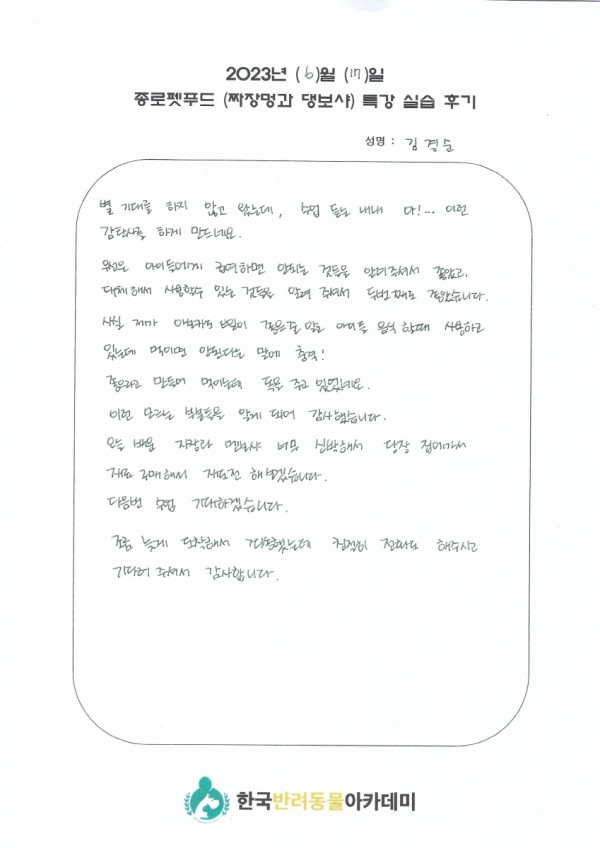 2023년 (6)월 (17)일
종로펫푸드 (짜장멍과 댕보샤) 특강 실습 후기
성명 : 김경순
별 기대를 하지 않고 왔는데, 수업 듣는 내내 다!... 이런
감탄사를 하게 만드네요.
우선은 아이들에게 급여하면 안되는 것들을 알려주셔서 좋았고,
대체해서 사용할수 있는 것들을 알려 주셔서 두번째로 좋았습니다.
사실 제가 아보카도 오일이 좋은줄 알고 아이들 음식 할때 사용하고
있는데 먹이면 안된다는 말에 충격!
좋은라고 만들어 먹이는데 독을 주고 있었네요.
이런 모르는 부분들을 알게 되어 감사했습니다.
오늘 배운 자장과 멘보샤 너무 신박해서 당장 집에가서
재료 구매해서 재도전 해보겠습니다.
다음번 수업 기대하겠습니다.
조금 늦게 도착해서 걱정했는데 친절히 전화도 해주시고
기다려 주셔서 감사합니다.
한국반려동물아카데미